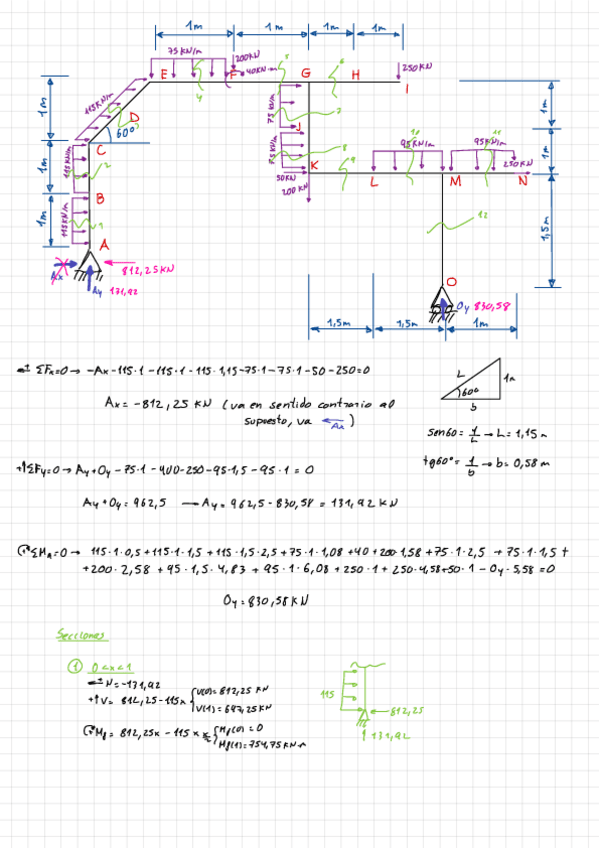 1m 1m 1m 1m
75 KN/m 200KN 40KN·m 5 6 250KN
E F G H I
4
115KN/m 75 KN/m 7
1m D 3 J 1m
60°
C 75 KN/m 8 10 95KN/m 11 95KN/m
1m 115 KN/m 2 K 1m
50KN 9 250KN
B 200 KN L M N
1m 115KN/m 1 12 1,5m
A
Ax 812,25 KN O
Ay 131,92 Oy 830,58
1,5m 1,5m 1m
ΣFx=0 → -Ax-115·1-115·1-115·1,15-75·1-75·1-50-250=0
L 1m
60°
b
Ax = -812,25 KN (va en sentido contrario al
supuesto, va Ax)
sen60 = 1/L → L= 1,15 m
tg60° = 1/b → b= 0,58 m
+↑ΣFy=0 → Ay+Oy-75·1-400-250-95·1,5-95·1 = 0
Ay+Oy = 962,5 → Ay = 962,5-830,58 = 131,92 KN
ΣMA=0 → 115·1·0,5+115·1·1,5+115·1,5·2,5+75·1·1,08+40+200·1,58+75·1·2,5+75·1·1,5+
+200·2,58+95·1,5·4,83+95·1·6,08+250·1+250·4,58+50·1-Oy·5,58=0
Oy=830,58KN
Secciones
1 0<x<1
N=-131,92
+↑V= 812,25-115x { V(0)=812,25 KN
V(1)=697,25KN
Mf = 812,25x-115x x/2 { Mf(0)=0
Mf(1)=754,75KN·m
115
812,25
131,92